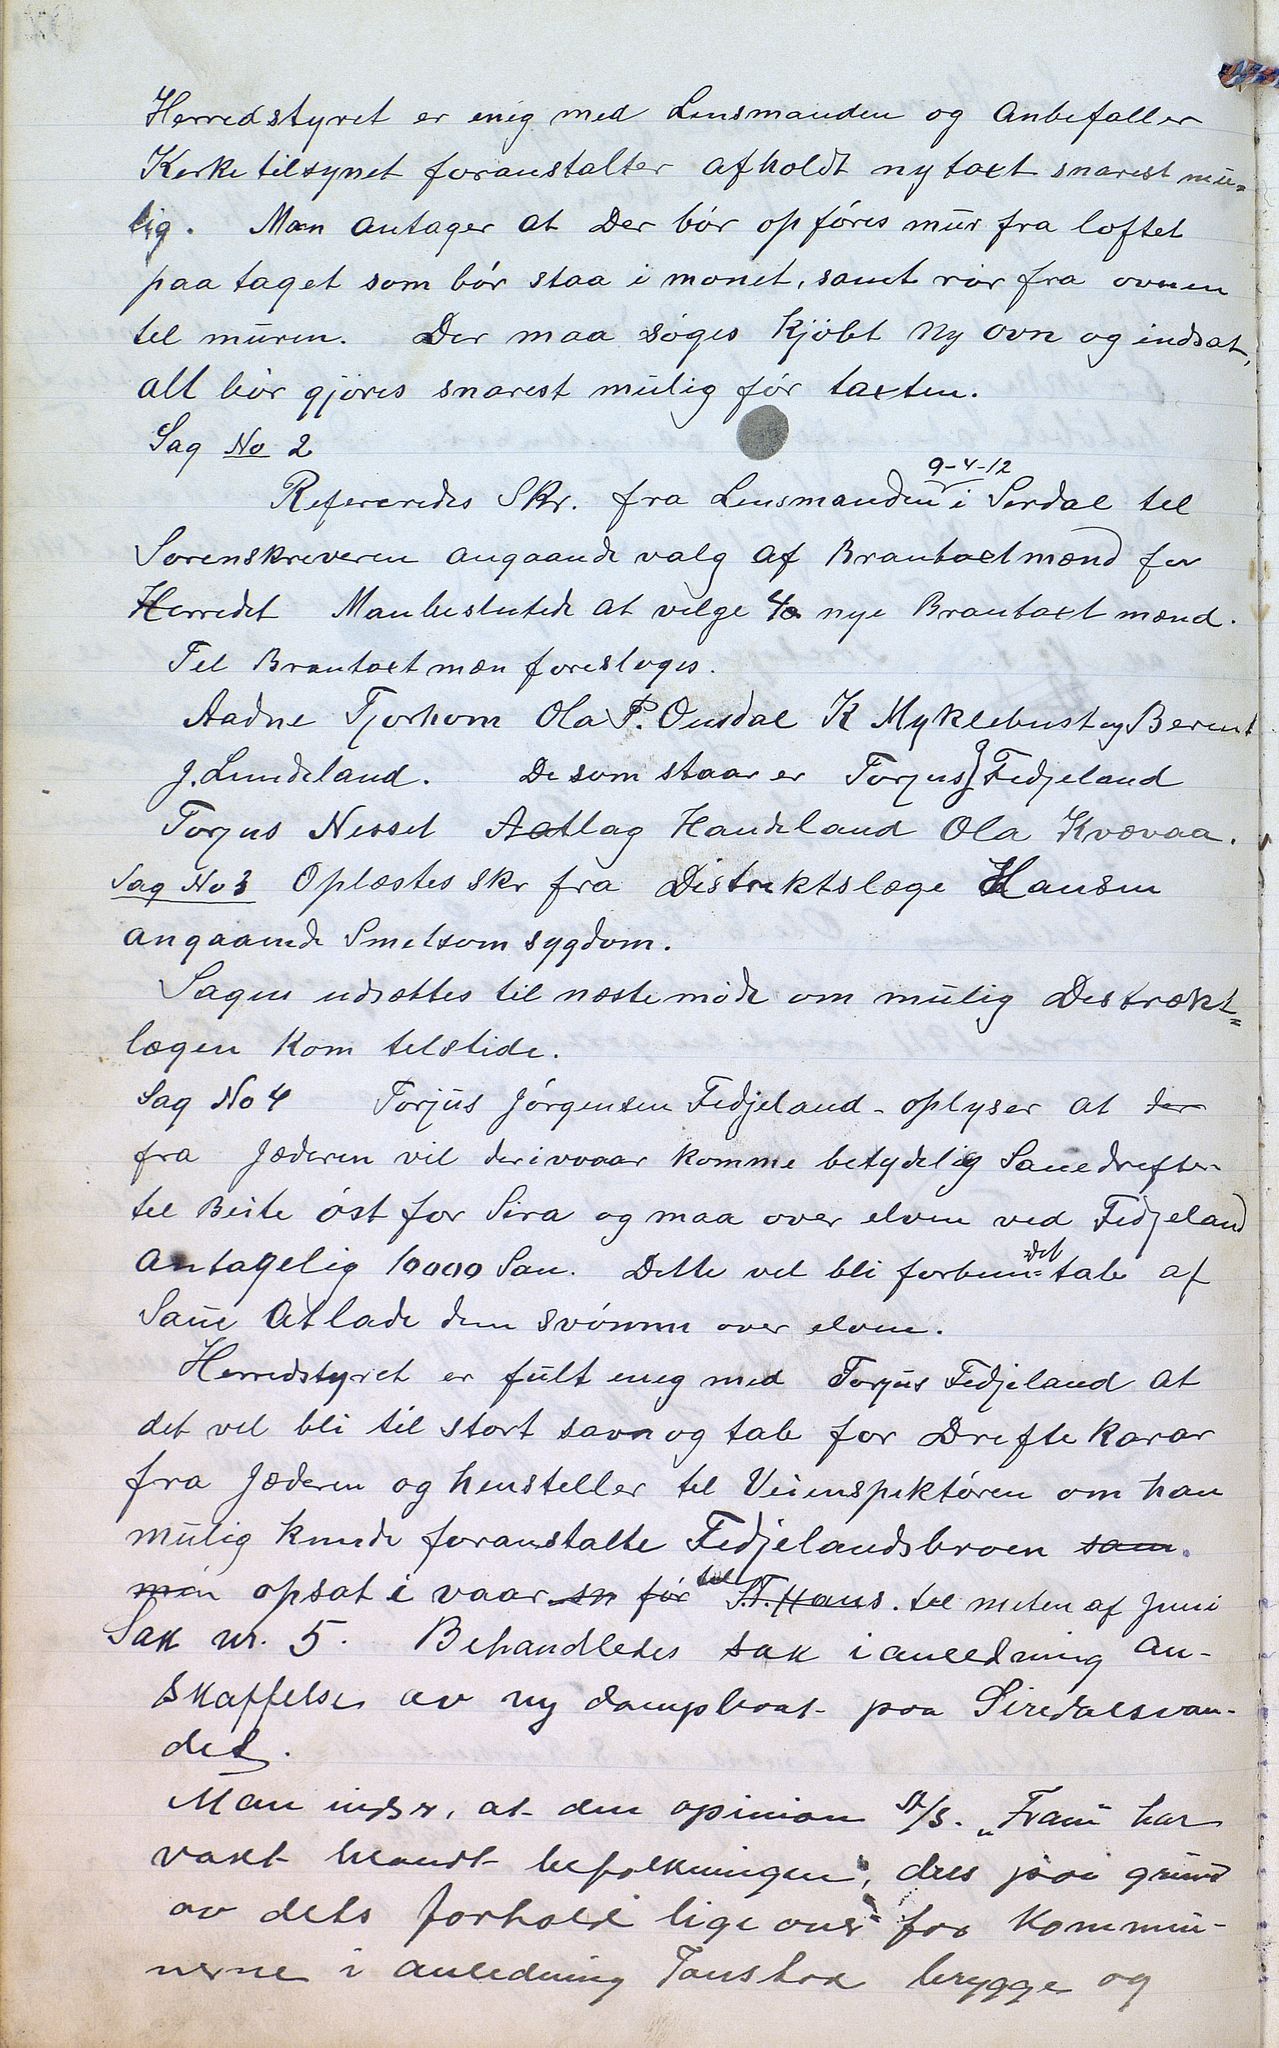 Herredstyret er enig med Lensmanden og Anbefaller
Kerketilsynet foranstalter afholdt ny taxt snarest mu-
lig. Man antager at Der bór opfóres mur fra loftet
paa taget som bór staa i mønet, samt rør fra ovnen
til muren. Der maa sóges kjóbt ny ovn og indsat,
alt bór gjóres snarest mulig fór taxten.
Sag No 2
9-4-12
Refereredes Skr. fra Lensmanden i Serdal til
Sorenskreveren angaande valg af Brantaxtmænd for
Herredet Man besluttede at velge 4 nye Brantaxt mænd.
Tel Brantaxt mæn foresloges.
Aadne Tjorhom Ola P. Ousdal K Myklebust og Berent
J. Lundeland. De som staar er Torjus J Fidjeland
Torjus Nesset Aatlag Handeland Ola Kvævaa.
Sag No 3 Oplæstes skr fra Distrektslæge Hansen
angaaende Smetsom sygdom.
Sagen udsættes til næste móde om mulig Destrækt=
lægen kom telstide.
Sag No 4 Torjus Jórgensen Fidjeland - oplyser at der
fra Jæderen vil der i vaar komme betydelig Sauedrefter
tel Beite óst for Sira og maa over elven ved Fidjeland
antagelig 10000 Sau. Dette vel bli forbundet tab af
Saue At lade dem svómme over elven.
Herredstyret er fult eneg med Torjus Fidjeland at
det vel bli til stort savn og tab for Drefte karar
fra Jæderen og henstiller tel Veienspektóren om han
mulig kunde foranstalte Fidjelandsbroen som
men opsat i vaar fór til St. Hans. tel meten af Juni
Sak nr. 5. Behandledes sak i anledning an-
skaffelse av ny dampbaat paa Siredalsvan-
det.
Man indser, at den opinion S/S. "Fram" har
vakt blandt befolkningen, dels paa grund
av dets forhold lige over for kommu-
nerne i anledning Tonstad brygge og